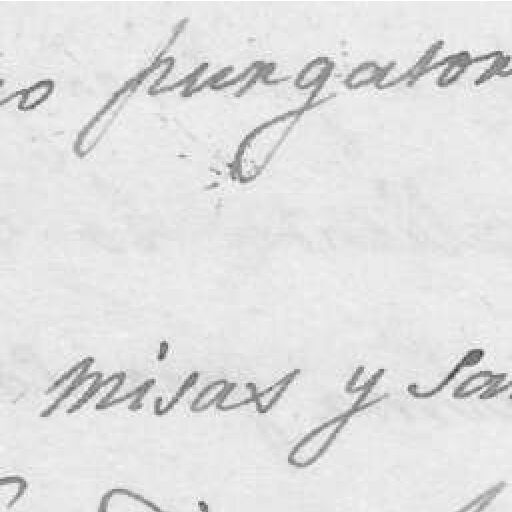 purgator
misas y sa